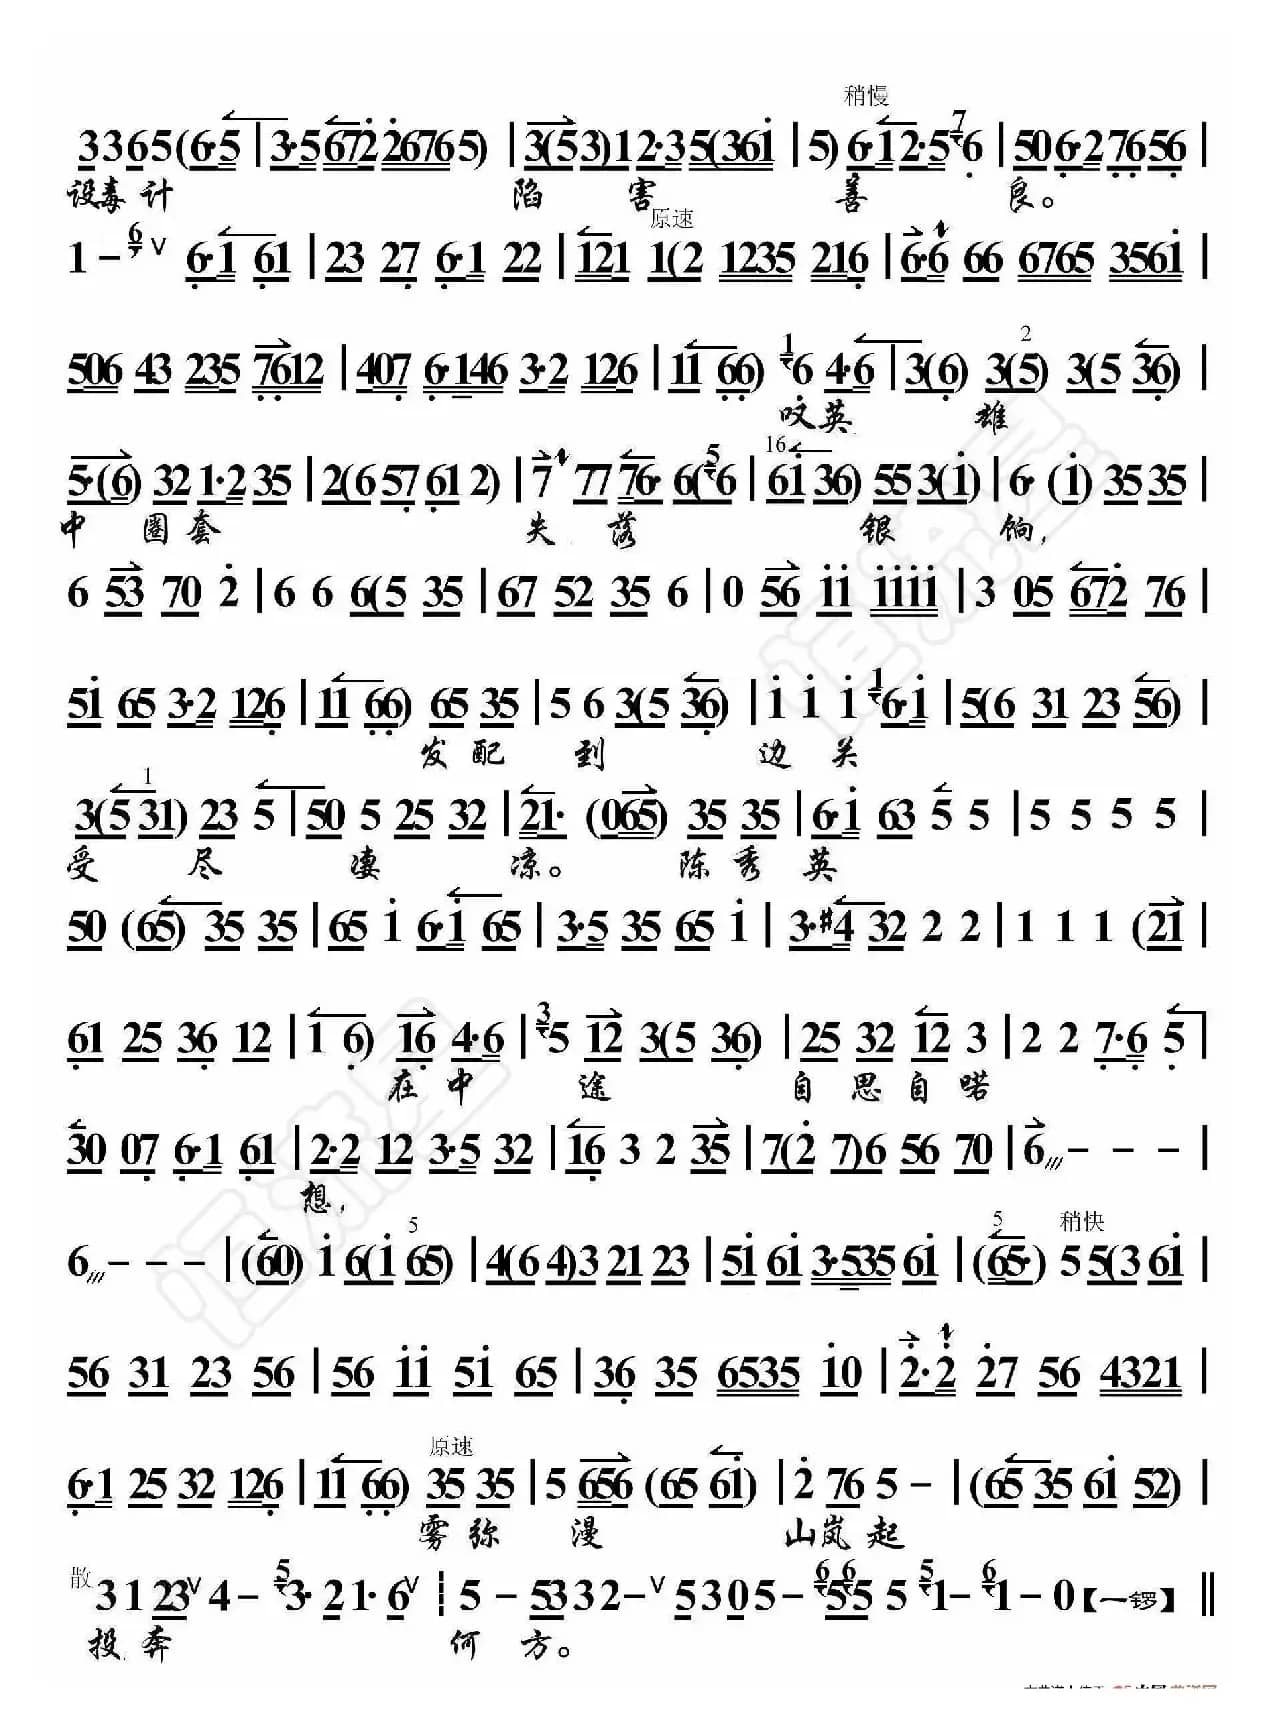 稍慢
3 3 6 5 (6·5 | 3·5 672̇ 2̇6765) | 3(53)12·35(361̇ | 5) 6·12·5 7 6 | 506·27656 |
设毒计 陷 害 善 良。
原速
1 – 6 ∨ 6·1 61 | 23 27 6·1 22 | 121 1(2 1235 216 | 6·6 66 6765 3561̇ |
506 43 235 7612 | 407 6·146 3·2 126 | 11 66) 1 6 4·6 | 3(6) 3(5) 3(5 36) |
2
叹英 雄
5·(6) 32 1·2 35 | 2(6 57 61 2) | 7 77 76· 6(5 6 | 61̇ 36) 55 3(1̇) | 6· (1̇) 35 35 |
16
中 圈套 失 落 银 饷，
6 53 70 2̇ | 6 6 6(5 35 | 67 52 35 6 | 0 56 1̇1̇ 1̇1̇1̇1̇ | 3 05 672̇ 76 |
51̇ 65 3·2 126 | 11 66) 65 35 | 5 6 3(5 36) | 1̇ 1̇ 1̇ 1 6·1̇ | 5(6 31 23 56) |
发配 到 边 关
1
3(5 31) 23 5 | 50 5 25 32 | 21· (065) 35 35 | 6·1̇ 63 5 5 | 5 5 5 5 |
受 尽 凄 凉。 陈秀英
50 (65) 35 35 | 65 1̇ 6·1̇ 65 | 3·5 35 65 1̇ | 3·#4 32 2 2 | 1 1 1 (21 |
61 25 36 12 | 1 6) 16 4·6 | 3 5 12 3(5 36) | 25 32 12 3 | 2 2 7·6 5 |
在中 途 自思自喏
30 07 6·1 61 | 2·2 12 3·5 32 | 16 3 2 35 | 7(2̇ 7)6 56 70 | 6 – – – |
想，
5 5 稍快
6 – – – | (60) 1̇ 6(1̇ 65) | 4(6 4)3 21 23 | 51̇ 61̇ 3·535 61̇ | (65·) 5 5(3 61̇ |
56 31 23 56 | 56 1̇1̇ 51̇ 65 | 36 35 6535 1̇0 | 2̇·2̇ 2̇7 56 4321 |
原速
6·1 25 32 126 | 11 66) 35 35 | 5 656 (65 61̇) | 2̇ 76 5 – | (65 35 61̇ 52) |
雾弥 漫 山岚起
散 3 1 23∨ 4 – 5 3· 21· 6∨ ┆ 5 – 5332 – ∨ 5305 – 6 5 6 5 5 5 1 – 6 1 – 0【一锣】‖
投奔 何 方。